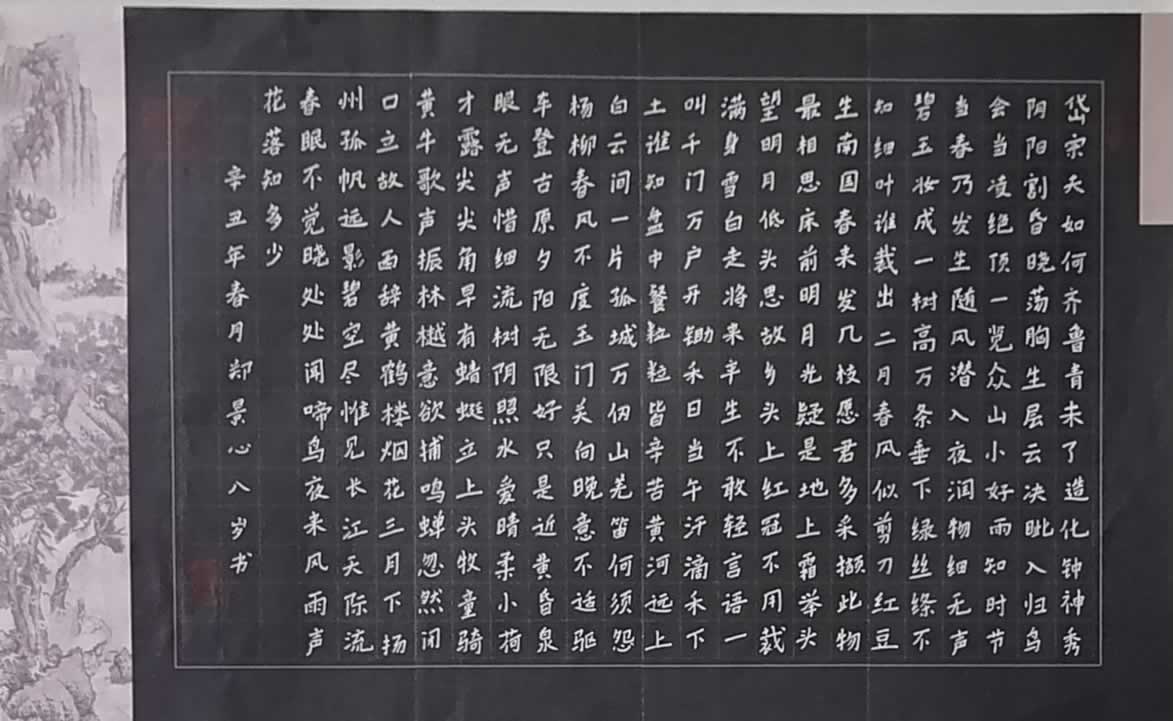 岱宗夫如何齐鲁青未了造化钟神秀
阴阳割昏晓荡胸生层云决眦入归鸟
会当凌绝顶一览众山小好雨知时节
当春乃发生随风潜入夜润物细无声
碧玉妆成一树高万条垂下绿丝绦不
知细叶谁裁出二月春风似剪刀红豆
生南国春来发几枝愿君多采撷此物
最相思床前明月光疑是地上霜举头
望明月低头思故乡头上红冠不用裁
满身雪白走将来平生不敢轻言语一
叫千门万户开锄禾日当午汗滴禾下
土谁知盘中餐粒粒皆辛苦黄河远上
白云间一片孤城万仞山羌笛何须怨
杨柳春风不度玉门关向晚意不适驱
车登古原夕阳无限好只是近黄昏泉
眼无声惜细流树阴照水爱晴柔小荷
才露尖尖角早有蜻蜓立上头牧童骑
黄牛歌声振林樾意欲捕鸣蝉忽然闭
口立故人西辞黄鹤楼烟花三月下扬
州孤帆远影碧空尽惟见长江天际流
春眠不觉晓处处闻啼鸟夜来风雨声
花落知多少
辛丑年春月郑景心八岁书